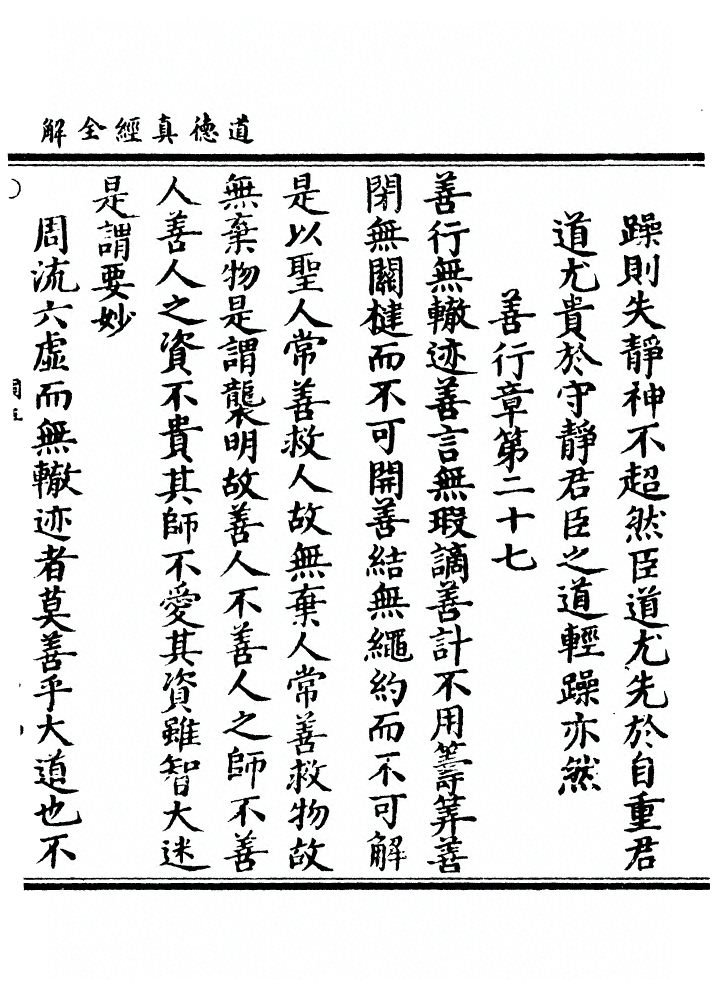 道德真經全解
躁則失靜神不超然臣道尤先於自重君
道尤貴於守靜君臣之道輕躁亦然
善行章第二十七
善行無轍迹善言無瑕謫善計不用籌筭善
閉無關楗而不可開善結無繩約而不可解
是以聖人常善救人故無棄人常善救物故
無棄物是謂襲明故善人不善人之師不善
人善人之資不貴其師不愛其資雖智大迷
是謂要妙
周流六虛而無轍迹者莫善乎大道也不